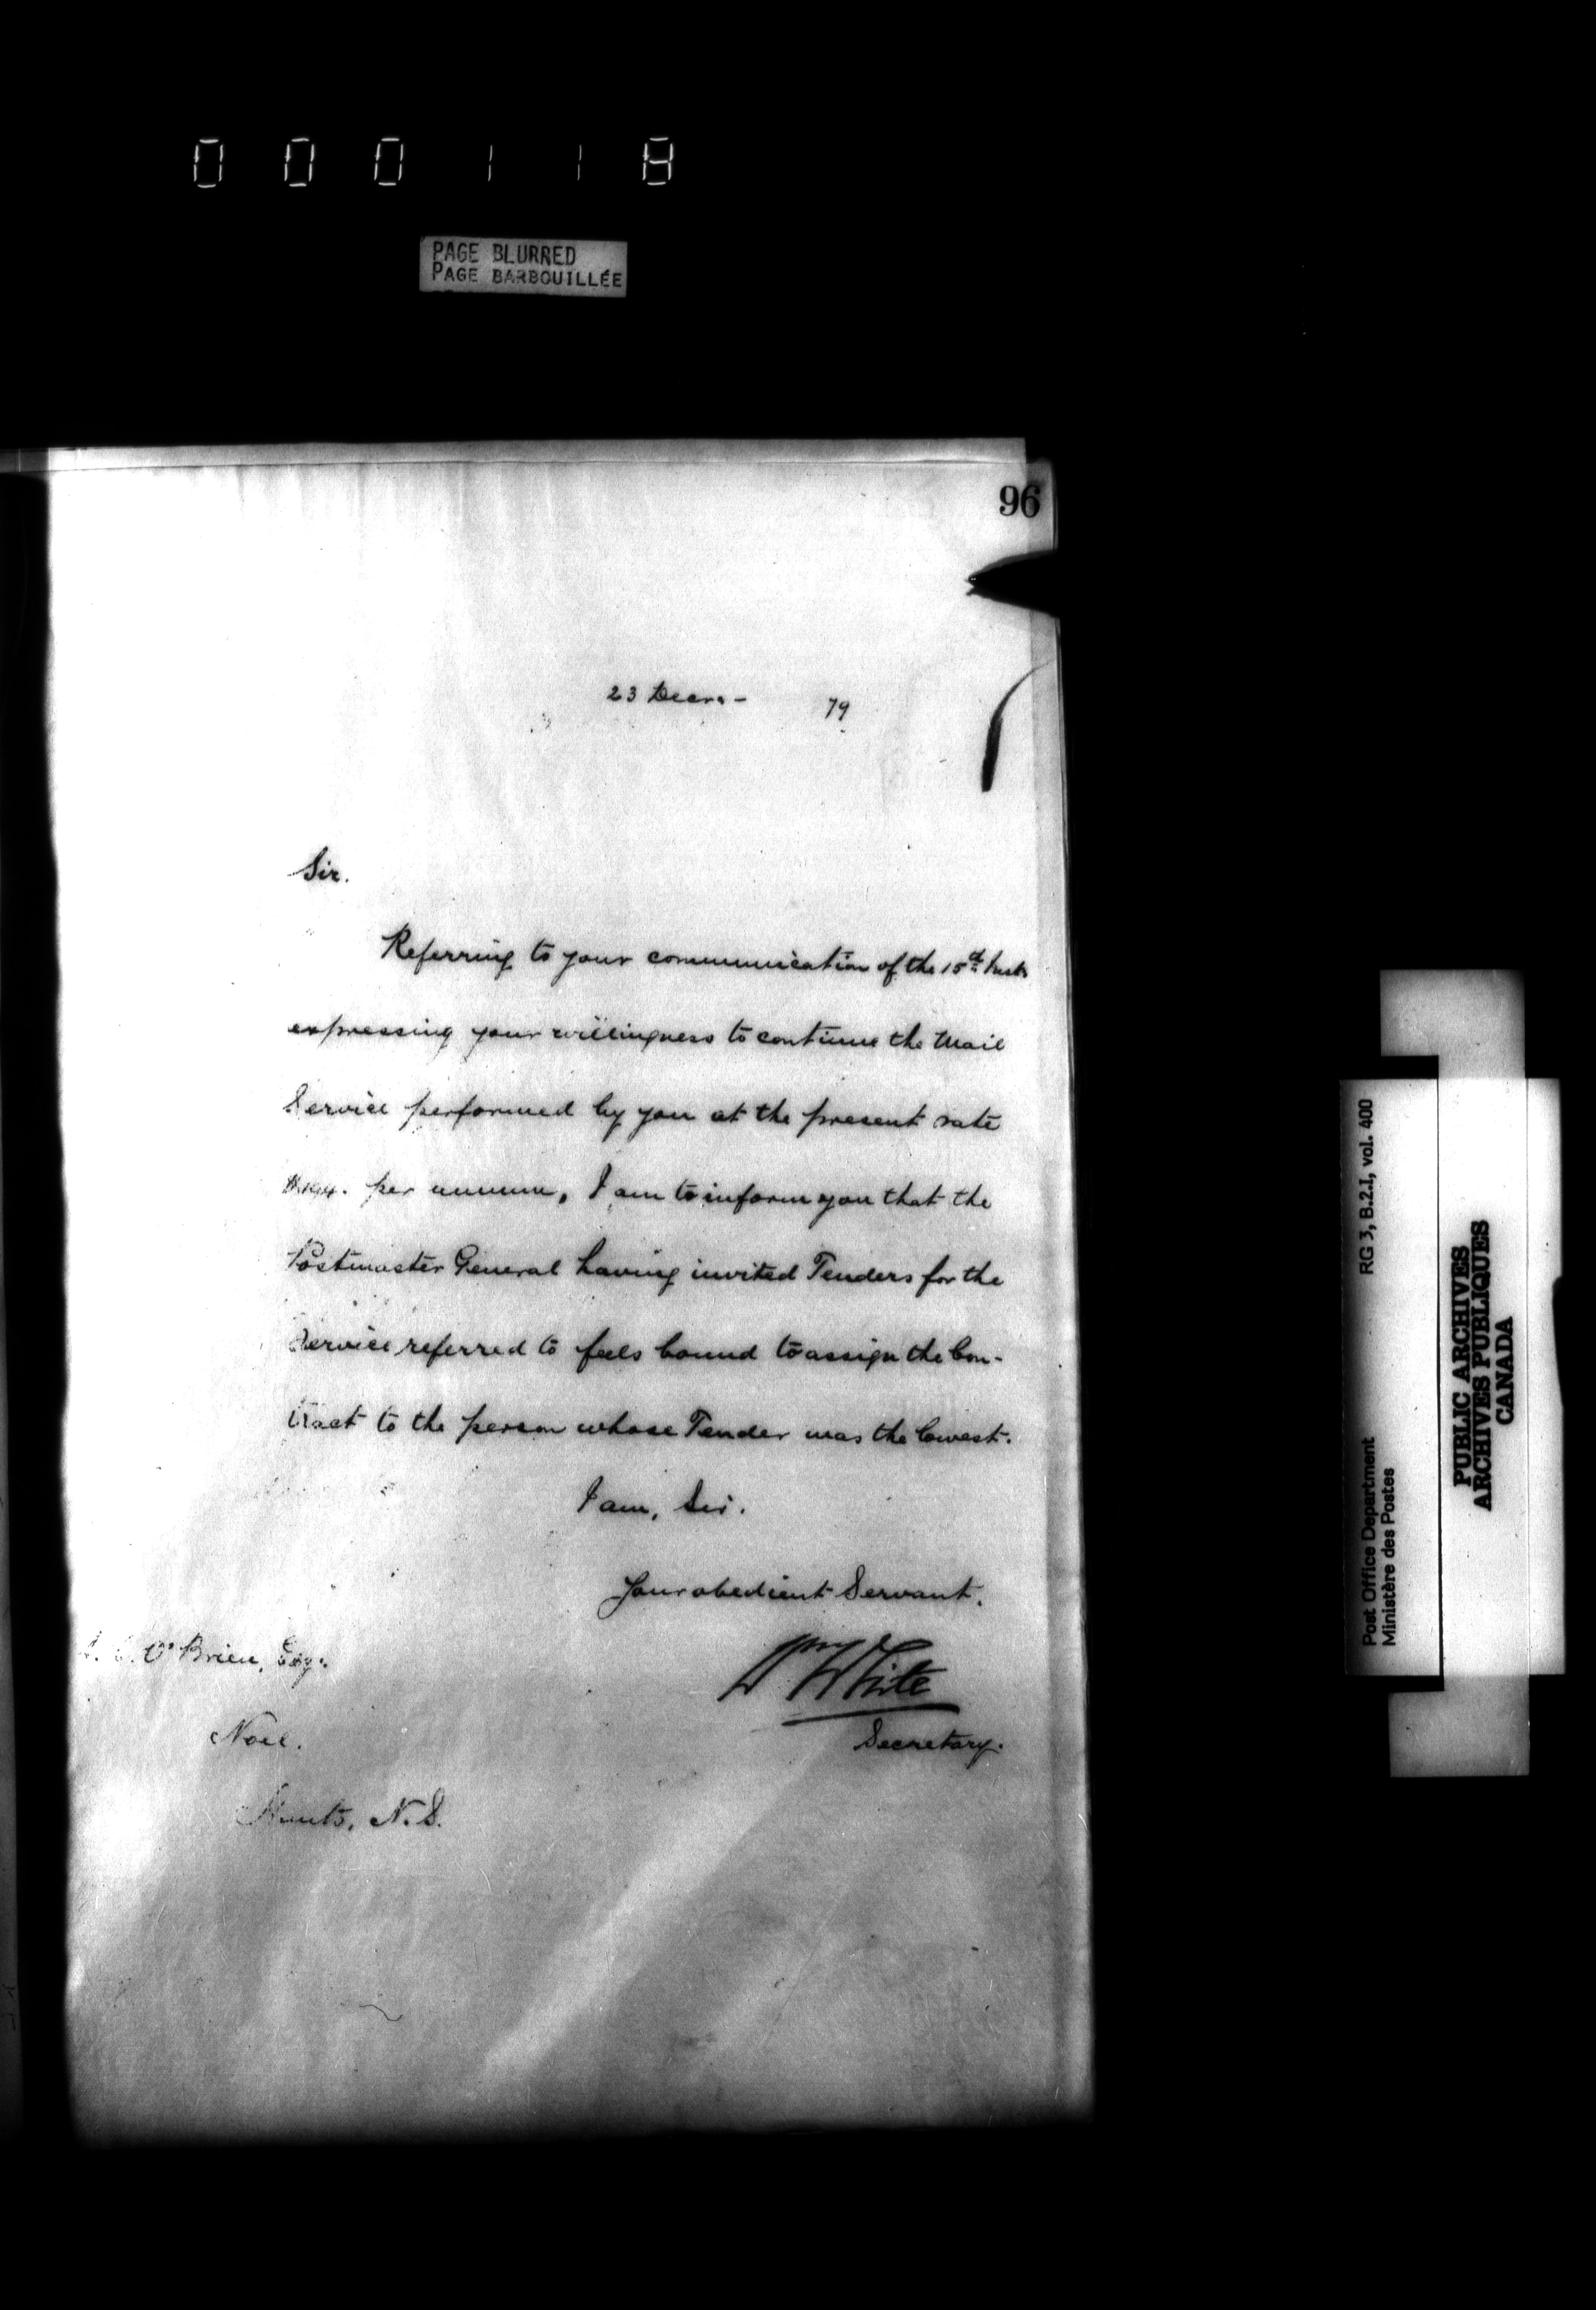 000118
PAGE BLURRED
PAGE BARBOUILLÉE
96
23 Decr. - 79
Sir.
Referring to your communication of the 15th Inst.
expressing your willingness to continue the Mail
Service performed by you at the present rate
per annum, I am to inform you that the
Postmaster General having invited Tenders for the
Service referred to feels bound to assign the Con-
tract to the person whose Tender was the lowest.
I am, Sir.
Your obedient Servant.
Wm White
Secretary.
O'Brien, Esq.
Noel.
Hants, N.S.
RG 3, B.2.I, vol. 400
Post Office Department
Ministère des Postes
PUBLIC ARCHIVES
ARCHIVES PUBLIQUES
CANADA